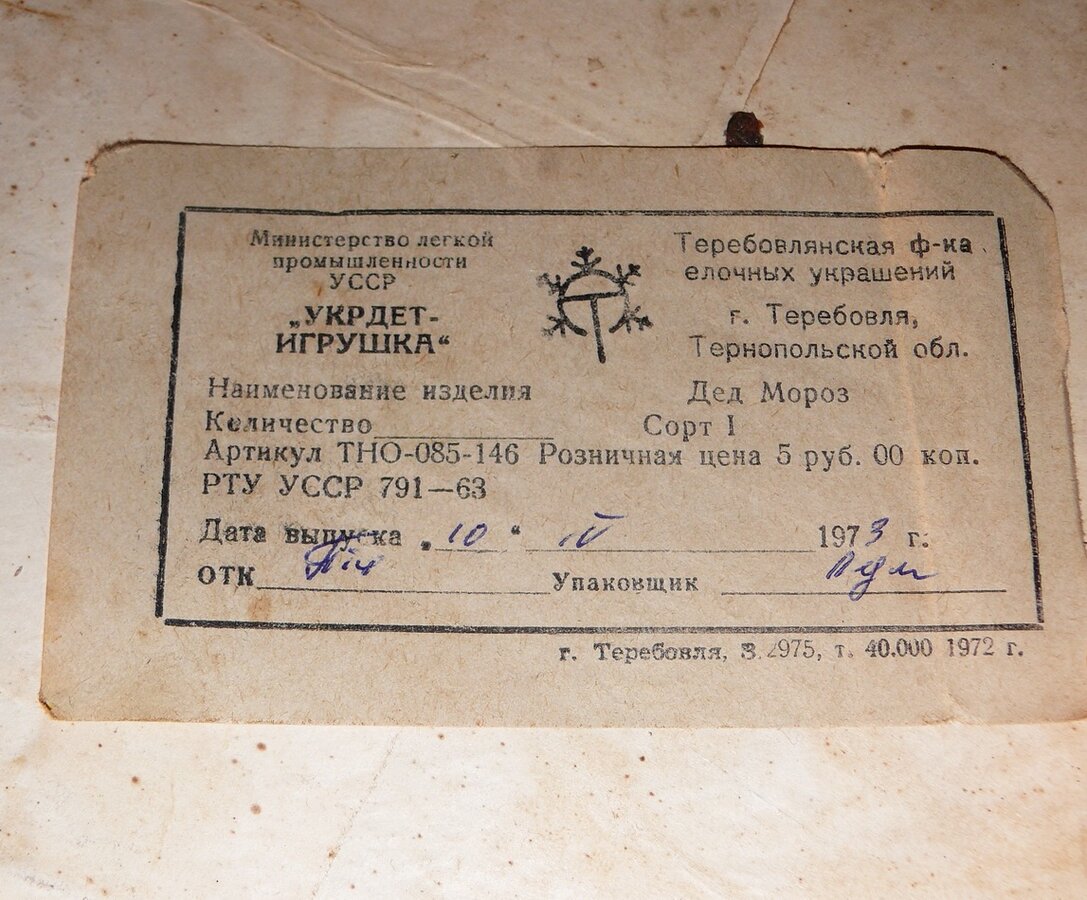 Министерство легкой
промышленности
УССР
„УКРДЕТ-
ИГРУШКА“
Теребовлянская ф-ка
елочных украшений
г. Теребовля,
Тернопольской обл.
Наименование изделия Дед Мороз
Количество Сорт I
Артикул ТНО-085-146 Розничная цена 5 руб. 00 коп.
РТУ УССР 791—63
Дата выпуска „10“ 1973 г.
ОТК Упаковщик
г. Теребовля, З. 2975, т. 40.000 1972 г.